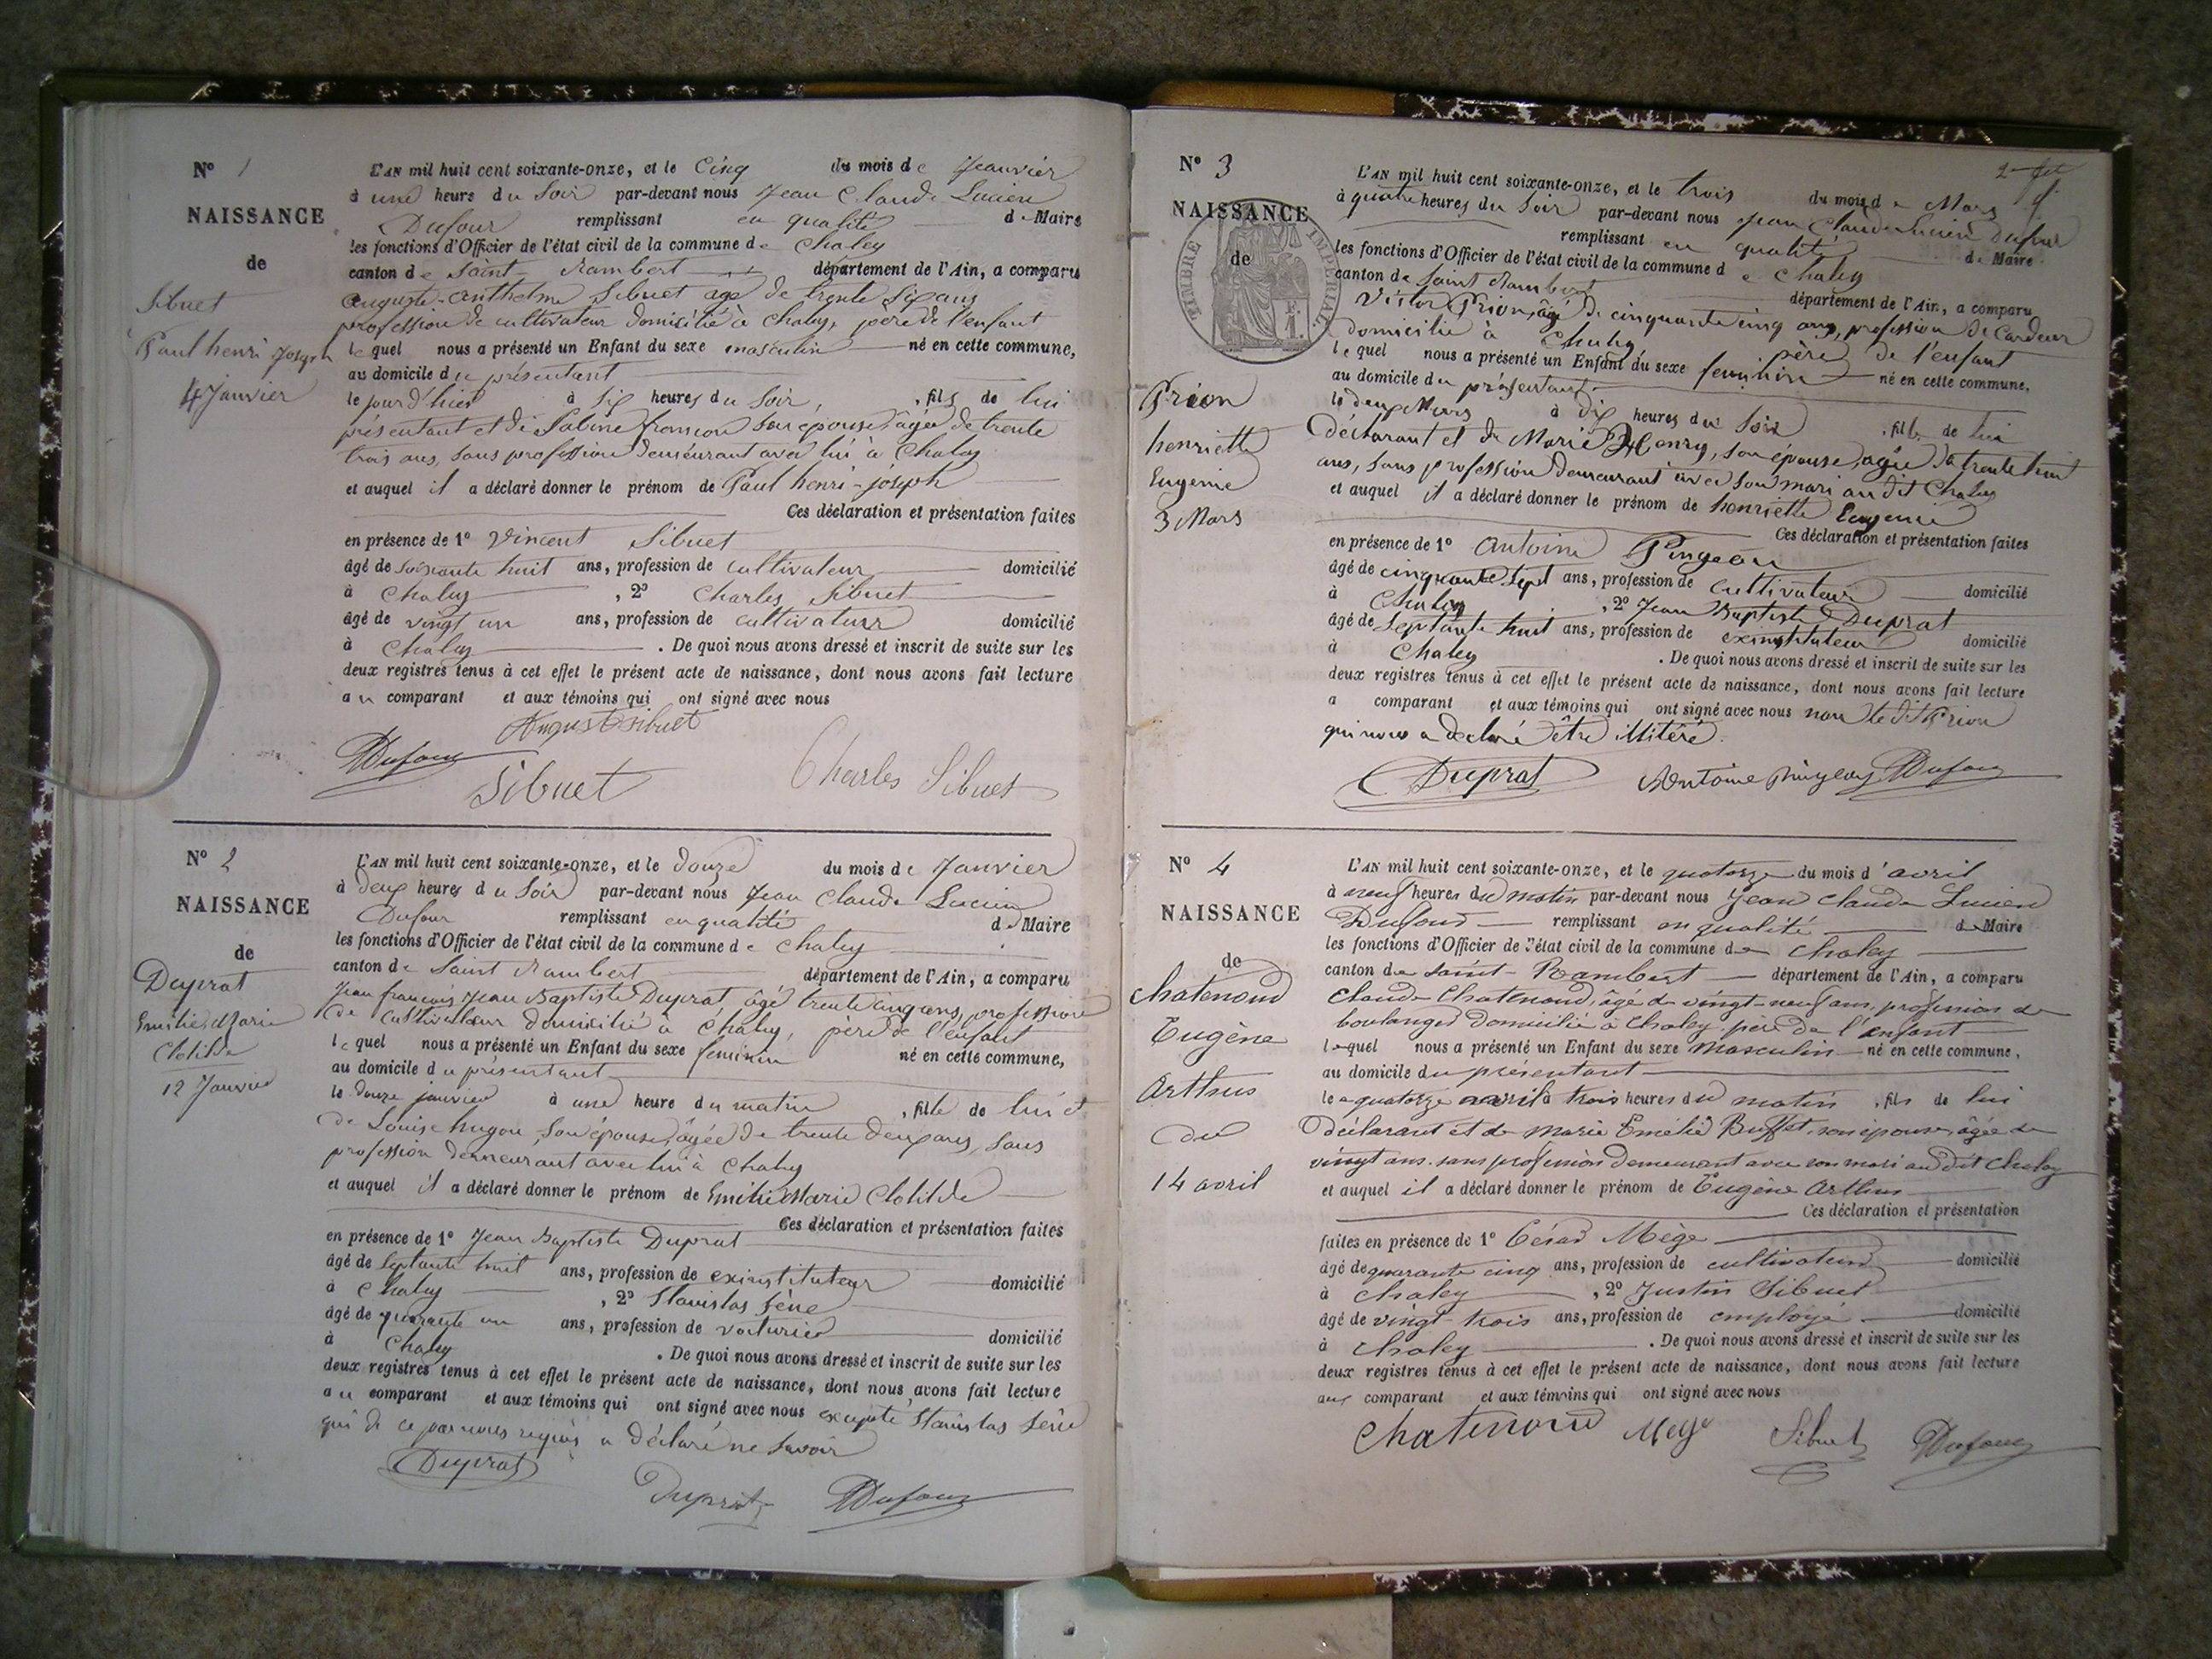 N° 1
NAISSANCE
de
Sibuet
Paul henri Joseph
4 Janvier
L'AN mil huit cent soixante-onze, et le Cinq du mois de Jeanvier
à une heure du Soir par-devant nous Jean Claude Lucien
Dufour remplissant en qualité de Maire
les fonctions d'Officier de l'état civil de la commune de Chaley
canton de Saint Rambert département de l'Ain, a comparu
auguste-anthelme Sibuet agé de trente six ans
profession de cultivateur domicilié à Chaley, père de l'enfant
lequel nous a présenté un Enfant du sexe masculin né en cette commune,
au domicile du présentant
le jour d'hier à six heures du Soir, fils de lui
présentant et de Sabine son épouse, âgée de trente
trois ans, sans profession demeurant avec lui à Chaley
et auquel il a déclaré donner le prénom de Paul henri-joseph
Ces déclaration et présentation faites
en présence de 1° Vincent Sibuet
âgé de soixante huit ans, profession de cultivateur domicilié
à Chaley, 2° Charles Sibuet
âgé de vingt un ans, profession de cultivateur domicilié
à Chaley. De quoi nous avons dressé et inscrit de suite sur les
deux registres tenus à cet effet le présent acte de naissance, dont nous avons fait lecture
au comparant et aux témoins qui ont signé avec nous
August Sibuet
Dufour
Sibuet Charles Sibuet
N° 2
NAISSANCE
de
Duprat
Emilie Marie
Clotilde
12 Janvier
L'AN mil huit cent soixante-onze, et le douze du mois de Janvier
à deux heures du Soir par-devant nous Jean Claude Lucien
Dufour remplissant en qualité de Maire
les fonctions d'Officier de l'état civil de la commune de Chaley
canton de Saint Rambert département de l'Ain, a comparu
Jean françois Jean Baptiste Duprat, âgé trente cinq ans, profession
de Cultivateur domicilié à Chaley, père de l'enfant
lequel nous a présenté un Enfant du sexe feminin né en cette commune,
au domicile du présentant
le douze janvier à une heure du matin, fille de lui et
de Louise hugon, son épouse, âgée de trente deux ans, sans
profession demeurant avec lui à Chaley
et auquel il a déclaré donner le prénom de Emilie Marie Clotilde
Ces déclaration et présentation faites
en présence de 1° Jean Baptiste Duprat
âgé de septante huit ans, profession de exinstituteur domicilié
à Chaley, 2° Stanislas Sène
âgé de quarante un ans, profession de voiturier domicilié
à Chaley. De quoi nous avons dressé et inscrit de suite sur les
deux registres tenus à cet effet le présent acte de naissance, dont nous avons fait lecture
au comparant et aux témoins qui ont signé avec nous excepté Stanislas Sène
qui de ce par nous requis a déclaré ne savoir
Duprat
Duprat Dufour
N° 3
NAISSANCE
de
TIMBRE IMPERIAL
Prion
henriette
Eugenie
3 Mars
L'AN mil huit cent soixante-onze, et le trois du mois de Mars
à quatre heures du Soir par-devant nous Jean Claude Lucien Dufour
remplissant en qualité de Maire
les fonctions d'Officier de l'état civil de la commune de Chaley
canton de Saint Rambert département de l'Ain, a comparu
Victor Prion, âgé de cinquante cinq ans, profession de Cardeur
domicilié à Chaley père de l'enfant
lequel nous a présenté un Enfant du sexe feminin né en cette commune,
au domicile du présentant
le deux Mars à dix heures du Soir, fille de lui
déclarant et de Marie Henry, son épouse, agée de trente huit
ans, sans profession demeurant avec son mari au dit Chaley
et auquel il a déclaré donner le prénom de henriette Eugenie
Ces déclaration et présentation faites
en présence de 1° Antoine Pingeon
âgé de cinquante sept ans, profession de cultivateur domicilié
à Chaley, 2° Jean Baptiste Duprat
âgé de Septante huit ans, profession de exinstituteur domicilié
à Chaley. De quoi nous avons dressé et inscrit de suite sur les
deux registres tenus à cet effet le présent acte de naissance, dont nous avons fait lecture
a comparant et aux témoins qui ont signé avec nous non le dit Prion
qui nous a declaré être illitéré.
Duprat Antoine Pingeon Dufour
N° 4
NAISSANCE
de
Chatenoud
Eugène
Arthus
du
14 avril
L'AN mil huit cent soixante-onze, et le quatorze du mois d'avril
à neuf heures du matin par-devant nous Jean Claude Lucien
Dufour remplissant en qualité de Maire
les fonctions d'Officier de l'état civil de la commune de Chaley
canton de Saint-Rambert département de l'Ain, a comparu
Claude Chatenoud, âgé de vingt-neuf ans, profession de
boulanger domicilié à Chaley, père de l'enfant
lequel nous a présenté un Enfant du sexe masculin né en cette commune,
au domicile du présentant
le quatorze avril à trois heures du matin, fils de lui
déclarant et de Marie Emélie Buffet, son épouse, âgée de
vingt ans, sans profession demeurant avec son mari au dit Chaley
et auquel il a déclaré donner le prénom de Eugène Arthus
Ces déclaration et présentation
faites en présence de 1° César Mège
âgé de quarante cinq ans, profession de cultivateur domicilié
à Chaley, 2° Justin Sibuet
âgé de vingt-trois ans, profession de employé domicilié
à Chaley. De quoi nous avons dressé et inscrit de suite sur les
deux registres tenus à cet effet le présent acte de naissance, dont nous avons fait lecture
aux comparant et aux témoins qui ont signé avec nous
Chatenoud Mège Sibuet Dufour